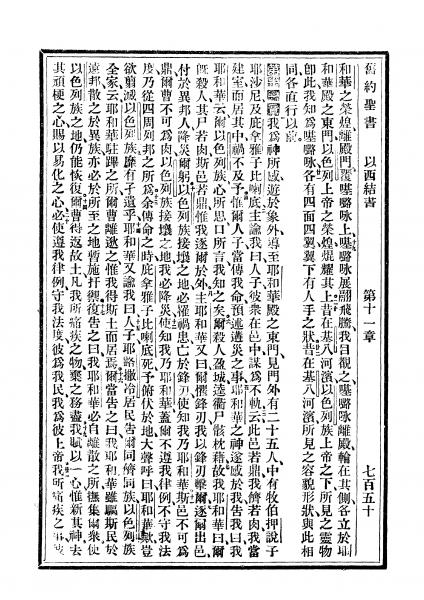 舊約聖書 以西結書 第十一章 七百五十
和華之榮煌離殿門蒞上展翮飛騰我目覩之離殿輪在其側各立於耶
和華殿之東門以色列上帝之榮煌焜耀其上昔在基八河濱以色列族上帝之下所見之靈物
卽此我知爲各有四面四翼翼下有人手之狀昔在基八河濱所見之容貌形狀與此相
同各直行以前
第十一章我爲神所感遊於象外導至耶和華殿之東門見門外有二十五人中有牧伯押說子
耶沙尼及庇拿雅子比喇底主諭我曰人子彼衆在邑中謀爲不軌云此邑若鼎我儕若肉我當
建室而居其中禍不及予惟爾人子當傳我命預述遘災之事耶和華之神遂感於我告我曰我
耶和華云爾以色列族心所思口所言我知之矣爾殺人盈城逵衢尸骸枕藉故我耶和華曰爾
旣殺人其尸若肉斯邑若鼎惟我逐爾於外主耶和華又曰爾懼鋒刃我以鋒刃擊爾逐爾出邑
付於異邦人降災爾躬以色列族接壤之地必罹禍患亡於鋒刃使知我乃耶和華斯邑不可爲
鼎爾曹不可爲肉以色列族接壤之地我必降災使知我乃耶和華蓋爾不遵我律例不守我法
度乃從四周列邦之所爲余傳命之時庇拿雅子比喇底死予俯伏於地大聲呼曰耶和華歟豈
欲剪滅以色列族靡有孑遺乎耶和華又諭我曰人子耶路撒冷居民告爾同儕同族以色列
全家云耶和華駐蹕之所爾曹離逖之惟我得斯土而居焉爾當告之曰我耶和華雖驅斯民於
遠邦散之於異族亦必於所至之地暫施扞衞復告之曰我耶和華必自離散之所撫集爾衆使
以色列族之地仍能恢復爾曹得返故土凡我所痛疾之物棄之移盡我賦以一心惟新其神去
其頑梗之心賜以易化之心必使遵我律例守我法度彼爲我民我爲彼上帝我所痛疾之事